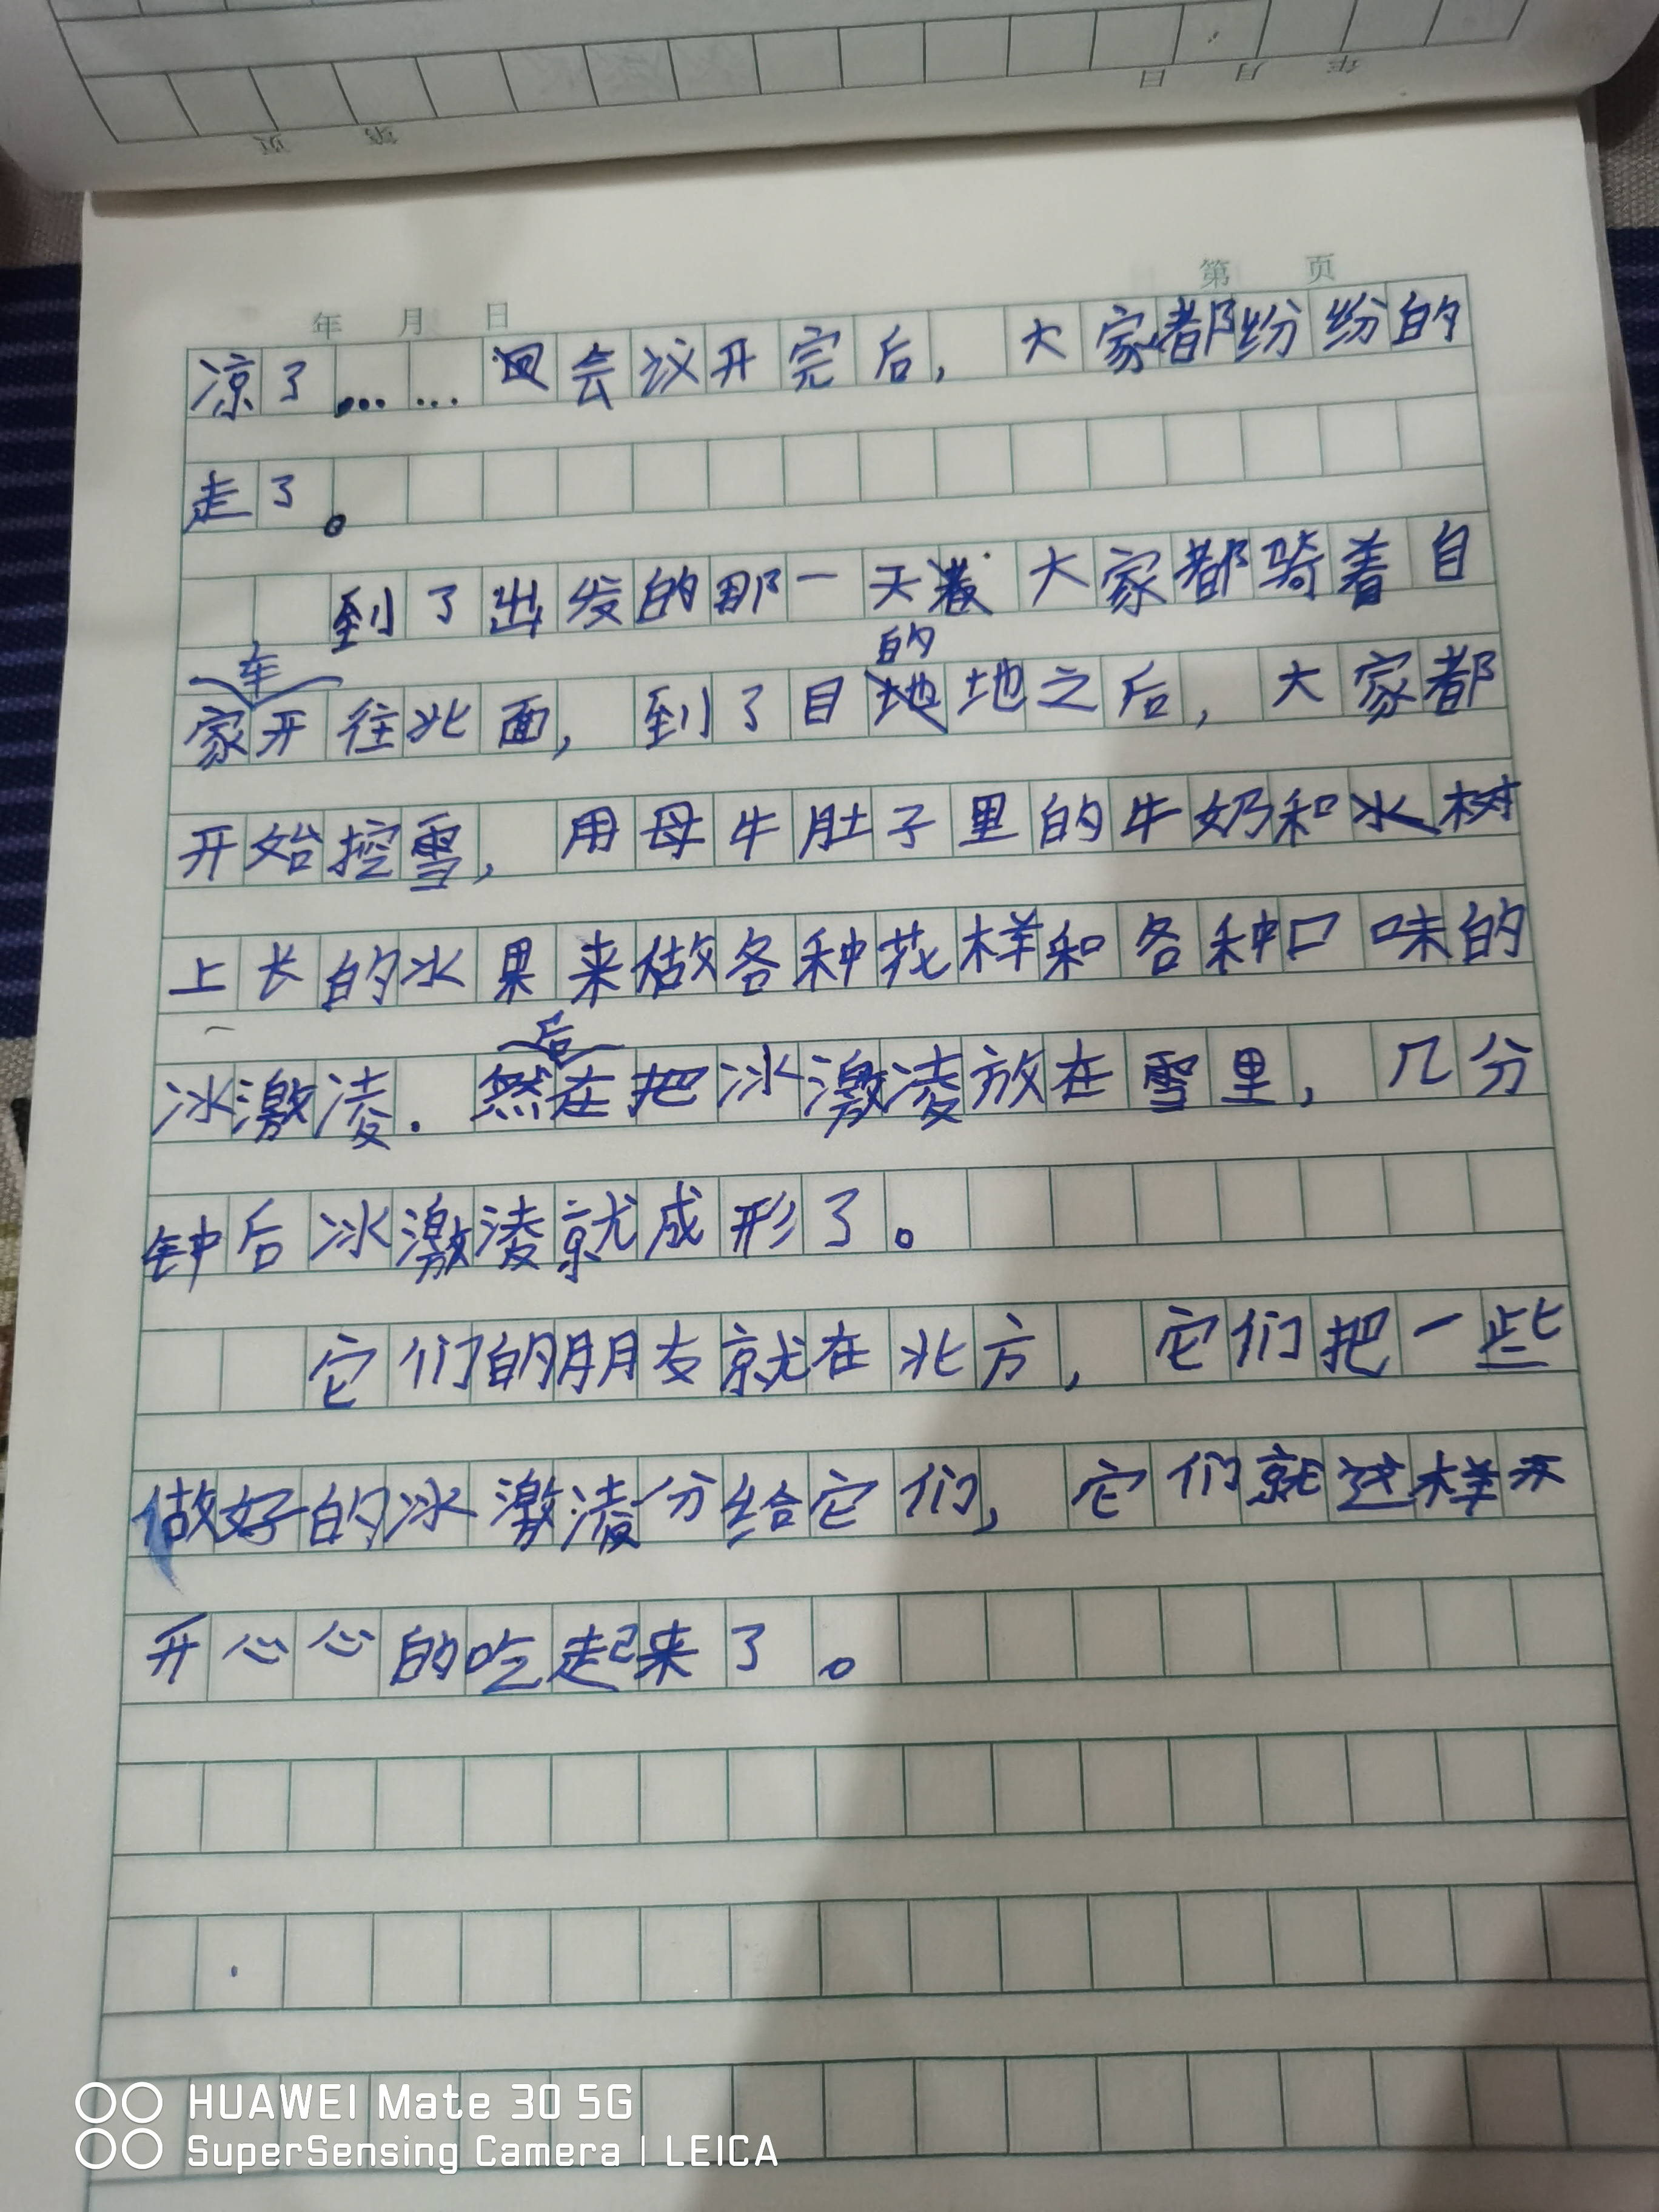 年 月 日 第 页
年 月 日 第 页
凉了……会议开完后，大家都纷纷的
走了。
到了出发的那一天 大家都骑着自
车
家开往北面，到了目的地之后，大家都
开始挖雪，用母牛肚子里的牛奶和水树
上长的水果来做各种花样和各种口味的
后
冰激凌．然在把冰激凌放在雪里，几分
钟后冰激凌就成形了。
它们的朋友就在北方，它们把一些
做好的冰激凌分给它们，它们就这样开
开心心的吃起来了。
HUAWEI Mate 30 5G
SuperSensing Camera | LEICA